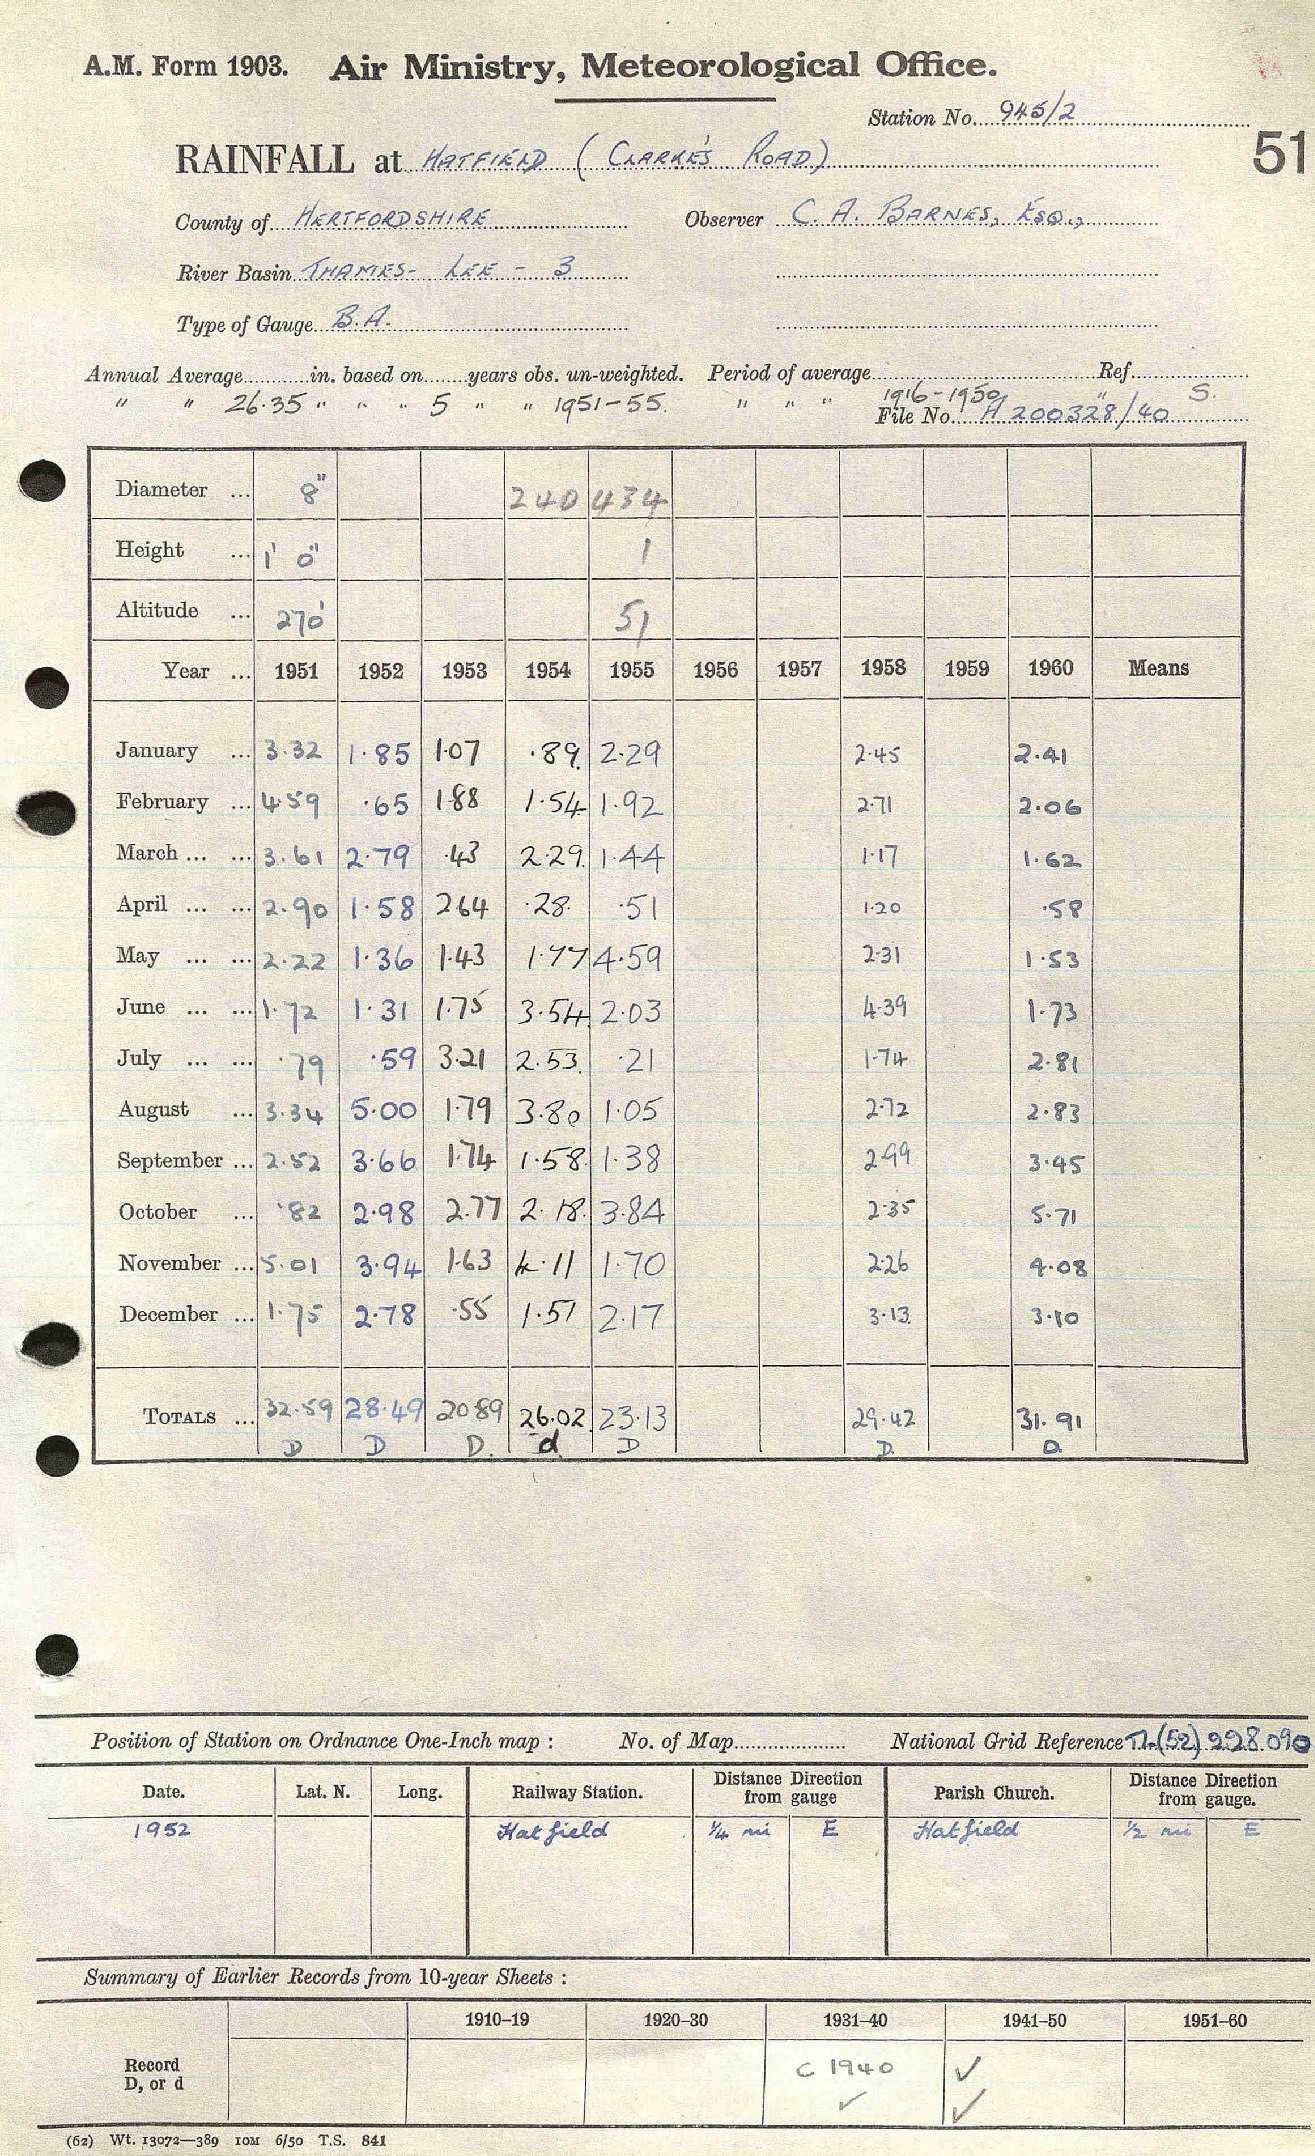 A.M. Form 1903. Air Ministry, Meteorological Office.
Station No. 945/2
51
RAINFALL at HATFIELD (CLARKE'S ROAD)
County of HERTFORDSHIRE Observer C. A. BARNES, ESQ.,
River Basin THAMES - LEE - 3
Type of Gauge B.A.
Annual Average in. based on years obs. un-weighted. Period of average 1916-1950 Ref. S.
" " 26.35 " " " 5 " " 1951-55. " " " "
File No. A 200328/40
Diameter ... 8" 240 434
Height ... 1' 0" 1
Altitude ... 270' 51
Year ... 1951 1952 1953 1954 1955 1956 1957 1958 1959 1960 Means
January ... 3.32 1.85 1.07 .89 2.29 2.45 2.41
February ... 4.59 .65 1.88 1.54 1.92 2.71 2.06
March ... ... 3.61 2.79 .43 2.29 1.44 1.17 1.62
April ... ... 2.90 1.58 2.64 .28 .51 1.20 .58
May ... ... 2.22 1.36 1.43 1.77 4.59 2.31 1.53
June ... ... 1.72 1.31 1.75 3.54 2.03 4.39 1.73
July ... ... .79 .59 3.21 2.53 .21 1.74 2.81
August ... 3.34 5.00 1.79 3.80 1.05 2.72 2.83
September ... 2.52 3.66 1.74 1.58 1.38 2.99 3.45
October ... .82 2.98 2.77 2.18 3.84 2.35 5.71
November ... 5.01 3.94 1.63 4.11 1.70 2.26 4.08
December ... 1.75 2.78 .55 1.51 2.17 3.13 3.10
TOTALS ... 32.59 28.49 20.89 26.02 23.13 29.42 31.91
D D D. d D D. D.
Position of Station on Ordnance One-Inch map : No. of Map National Grid Reference TL (52) 228.090
Date. Lat. N. Long. Railway Station. Distance from gauge Direction Parish Church. Distance from gauge. Direction
1952 Hatfield 1/4 mi E Hatfield 1/2 mi E
Summary of Earlier Records from 10-year Sheets :
1910–19 1920–30 1931–40 1941–50 1951–60
Record C 1940 ✓
D, or d ✓ ✓
(62) Wt. 13072—389 10M 6/50 T.S. 841